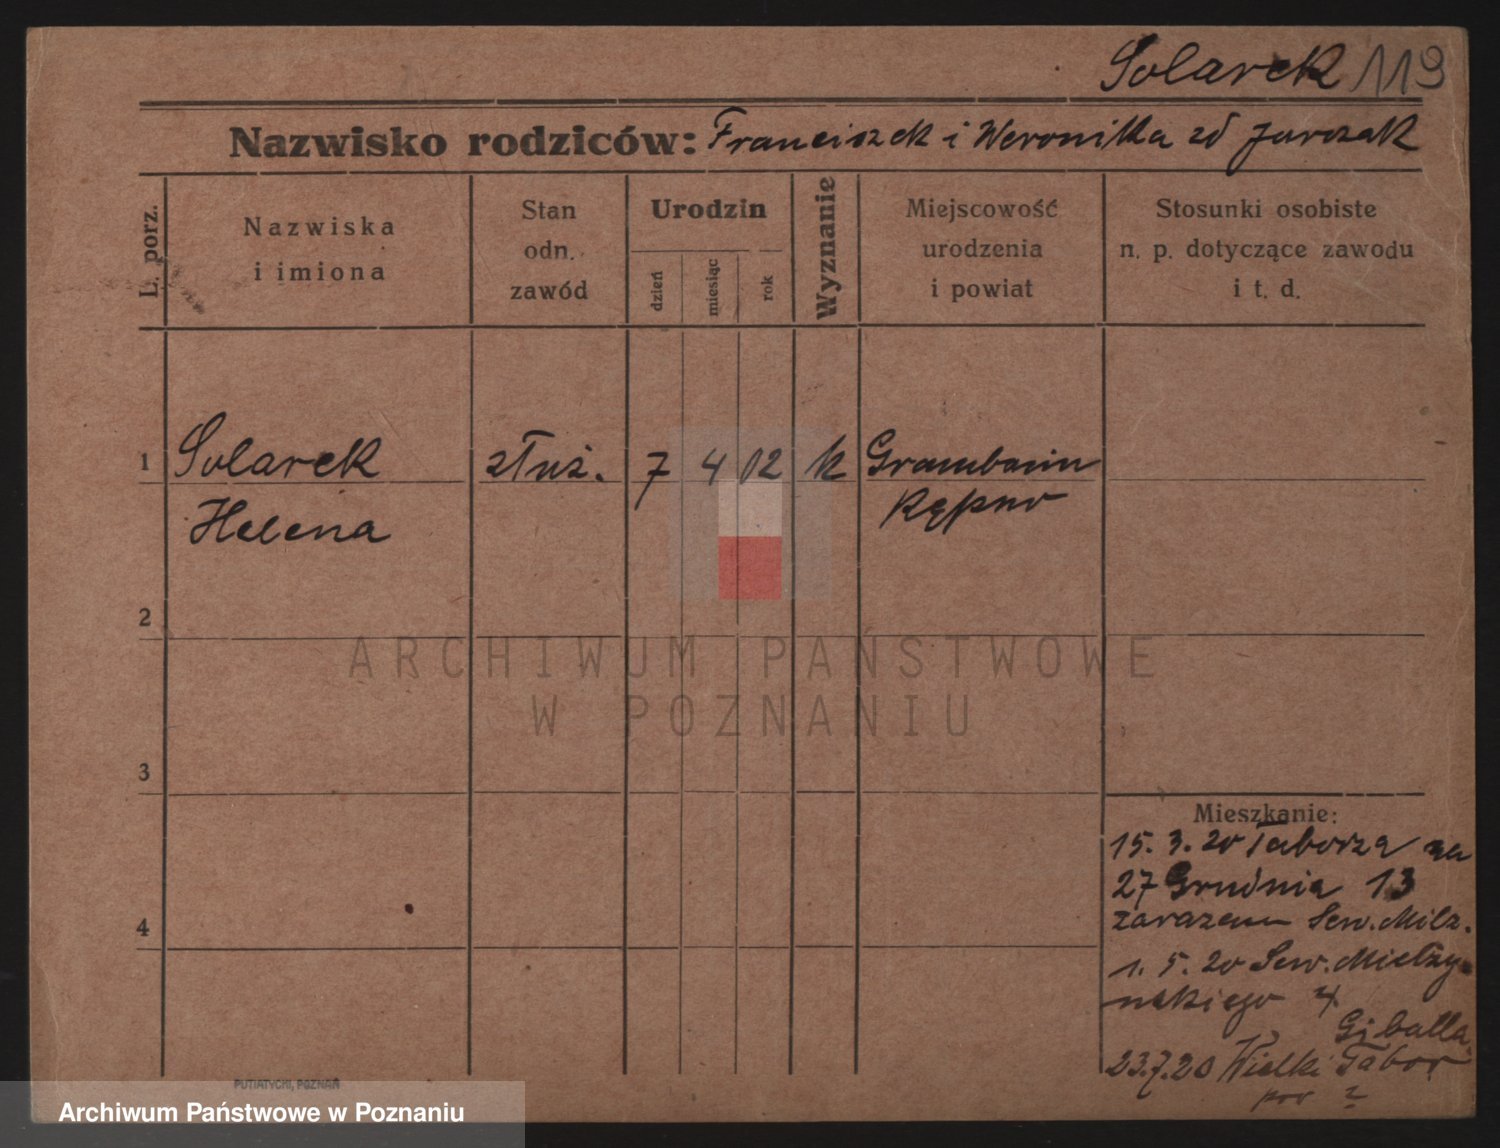 Solarek 119
Nazwisko rodziców: Franciszek i Weronika zd Jurczak
L. porz.
Nazwiska
i imiona
Stan
odn.
zawód
Urodzin
dzień
miesiąc
rok
Wyznanie
Miejscowość
urodzenia
i powiat
Stosunki osobiste
n. p. dotyczące zawodu
i t. d.
1 Solarek służ. 7 4 02 k
Helena Kępno
2
3
4
Mieszkanie:
15. 3. 20 na
27 Grudnia 13
zarazem Sew. Milz.
1. 5. 20 Sew. Mielży
nskiego 4
Giballa
23.7.20 Wielki Tabor
pow ?
ARCHIWUM PAŃSTWOWE
W POZNANIU
PUTIATYCKI, POZNAŃ
Archiwum Państwowe w Poznaniu